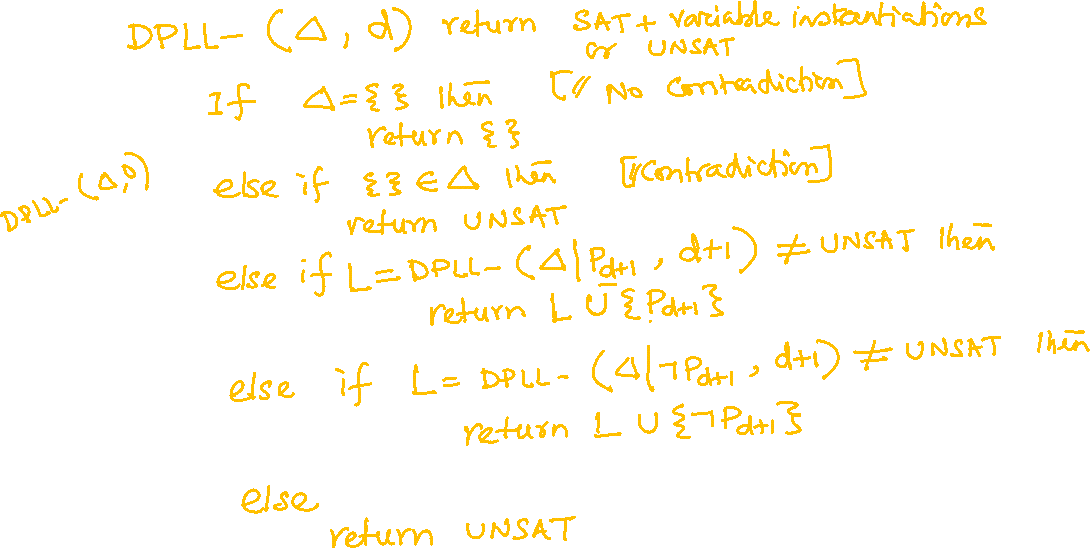 DPLL- (Δ, d) return SAT + variable instantiations
or UNSAT
If Δ={} then [// No contradiction]
return {}
DPLL- (Δ,0)
else if {} ∈ Δ then [// Contradiction]
return UNSAT
else if L = DPLL- (Δ|P_{d+1}, d+1) ≠ UNSAT then
return L ∪ {P_{d+1}}
else if L = DPLL- (Δ|¬P_{d+1}, d+1) ≠ UNSAT then
return L ∪ {¬P_{d+1}}
else
return UNSAT